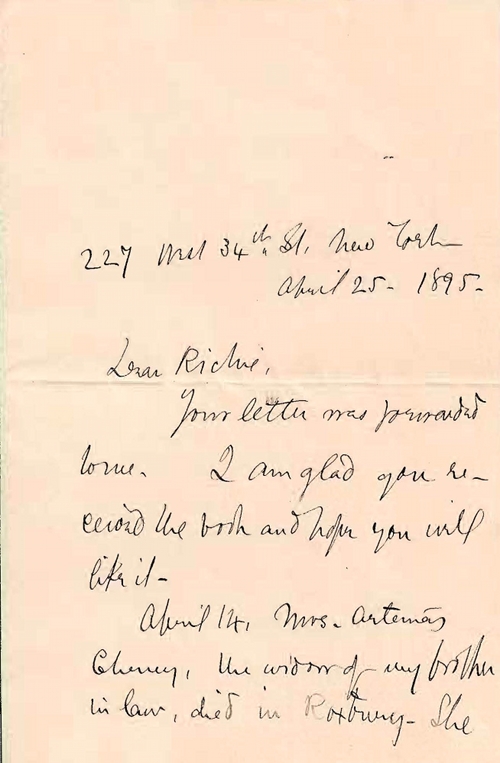 227 West 34th St, New York
April 25 - 1895 -
Dear Richie,
Your letter was forwarded
to me. I am glad you re-
ceived the book and hope you will
like it -
April 14, Mrs. Artemas
Cheney, the widow of my brother
in law, died in Roxbury - She